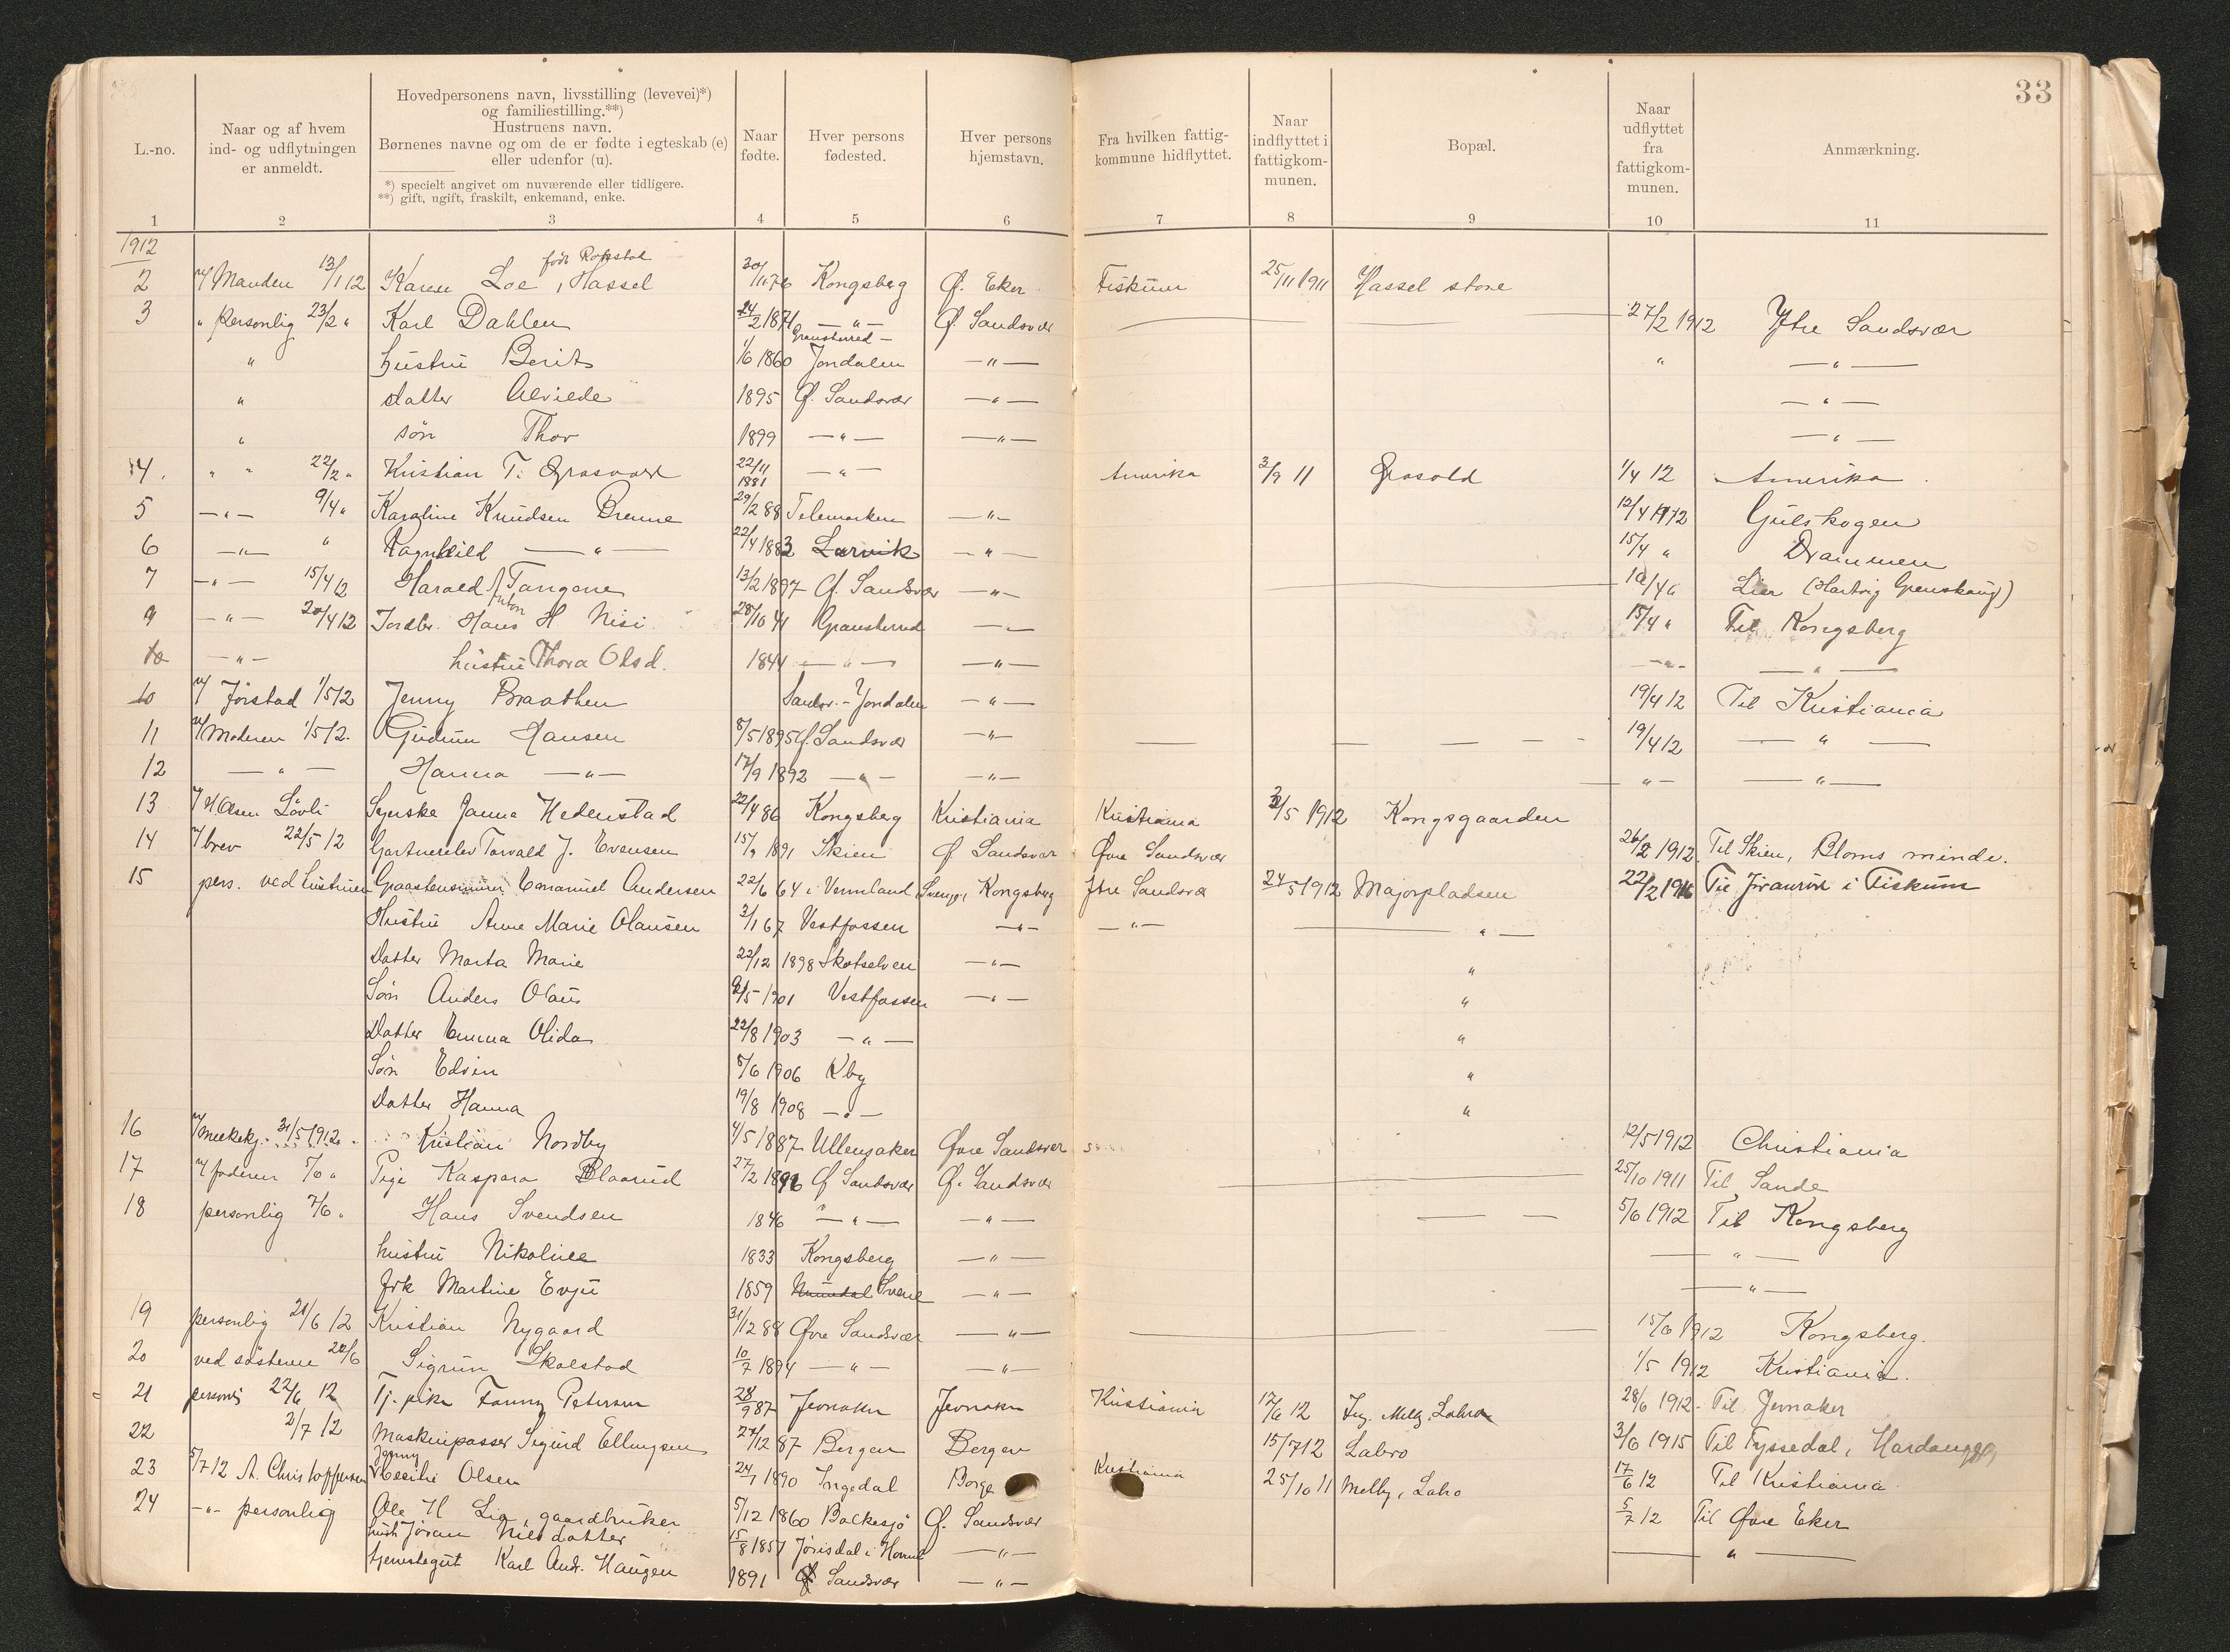 33
L.-no.
Naar og af hvem
ind- og udflytningen
er anmeldt.
Hovedpersonens navn, livsstilling (levevei)*)
og familiestilling.**)
Hustruens navn.
Børnenes navne og om de er fødte i egteskab (e)
eller udenfor (u).
*) specielt angivet om nuværende eller tidligere.
**) gift, ugift, fraskilt, enkemand, enke.
Naar
fødte.
Hver persons
fødested.
Hver persons
hjemstavn.
Fra hvilken fattig-
kommune hidflyttet.
Naar
indflyttet i
fattigkom-
munen.
Bopæl.
Naar
udflyttet
fra
fattigkom-
munen.
Anmærkning.
1 2 3 4 5 6 7 8 9 10 11
1912
2 v/ Manden 13/1 12 Karen Loe, Hassel født 30/11 76 Kongsberg Ø. Eker Fiskum 25/11 1911 Hassel store
3 " Personlig 23/2 " Karl Dahlen 24/2 1871 — " — Ø. Sandsvær 27/2 1912 Ytre Sandsvær
" hustru Berit 1/6 1860 Gransherred - Jondalen — " — " — " —
" datter 1895 Ø. Sandsvær — " — — " —
" søn Thor 1899 — " — — " — — " —
4. " " 22/2 " Kristian T. 22/11 1881 — " — Amerika 3/9 11 1/4 12 Amerika
5 — " — 9/4 " Karoline Knudsen Brenne 29/2 88 Telemarken — " — 12/4 1912 Gulskogen
6 — " — " Ragnhild — " — 22/4 1883 Larvik — " — 15/4 " Drammen
7 — " — 15/4 12 Harald Tangene 13/2 1897 Ø. Sandsvær — " — Lier (Hartvig
9 — " — 20/4 12 Hans H Nisi 28/10 41 Gransherred — " — 15/4 " Til Kongsberg
10 — " — hustru Thora Olsd. 1844 — " — — " — — " — — " —
10 v/ Jørstad 1/5 12 Jenny Braathen Sandsv. - Jondalen — " — 19/4 12 Til Kristiania
11 v/ Moderen 1/5 12. Gudrun Hansen 8/5 1895 Ø. Sandsvær — " — 19/4 12 — " —
12 — " — Hanna — " — 17/9 1892 — " — — " — — " — — " —
13 v/ H. Olsen Løvli Synske Janna Hedenstad 22/4 86 Kongsberg Kristiania Kristiania 1912 Kongsgaarden
14 v/ brev 22/5 12 Gartnerelev Torvald J. Evensen 15/9 1891 Skien Ø Sandsvær Øvre Sandsvær 26/2 1912 Til Skien, Bloms minde.
15 pers. ved hustruen Emanuel Andersen 22/6 64 i Vermland Kongsberg Ytre Sandsvær 24/5 1912 Majorpladsen 22/2 1916 Til i Fiskum
Hustru Anne Marie Olausen 3/1 67 Vestfossen — " — — " — — " —
Datter Marta Marie 22/12 1898 Skotselven — " — "
Søn Anders Olaus 1901 Vestfossen — " — "
Datter Emma Olida 22/8 1903 — " — "
Søn Edvin 5/6 1906 Kbg "
Datter Hanna 19/8 1908 — " — "
16 31/5 1912 Kristian Nordby 4/5 1887 Ullensaker Øvre Sandsvær 12/5 1912 Christiania
17 v/ faderen 5/6 " Pige Kaspara Blaarud 27/2 1896 Ø Sandsvær Ø. Sandsvær 25/10 1911 Til Sande
18 personlig 7/6 " Hans Svendsen 1846 — " — — " — 5/6 1912 Til Kongsberg
hustru Nikoline 1833 Kongsberg — " — — " —
frk Martine Evju 1859 Numedal Svene — " — — " —
19 personlig 21/6 12 Kristian Nygaard 31/12 88 Øvre Sandsvær — " — 15/6 1912 Kongsberg.
20 ved søsteren 20/6 Sigrun Skolstad 10/7 1894 — " — — " — 1/5 1912 Kristiania.
21 22/6 12 Tj. pike Fanny Petersen 28/9 87 Jevnaker Jevnaker Kristiania 12/6 12 Labro 28/6 1912 - Til Jevnaker
22 2/7 12 Maskinpasser Sigurd Ellingsen 27/12 87 Bergen Bergen 15/7 12 Labro 3/6 1915 Til Tyssedal, Hardanger
23 5/7 12 A. Christoffersen Jenny Olsen 24/1 1890 Ingedal Borge Kristiania 25/10 11 Melby, Labro 17/6 12 Til Kristiania
24 — " — personlig Ole H Lia, gaardbruker 5/12 1860 Bolkesjø Ø. Sandsvær 5/7 12 Til Øvre Eker
hust. Jøran Nilsdatter 15/8 1857 — " — — " —
tjenestegut Karl And. Haugen 1891 Ø Sandsvær — " —